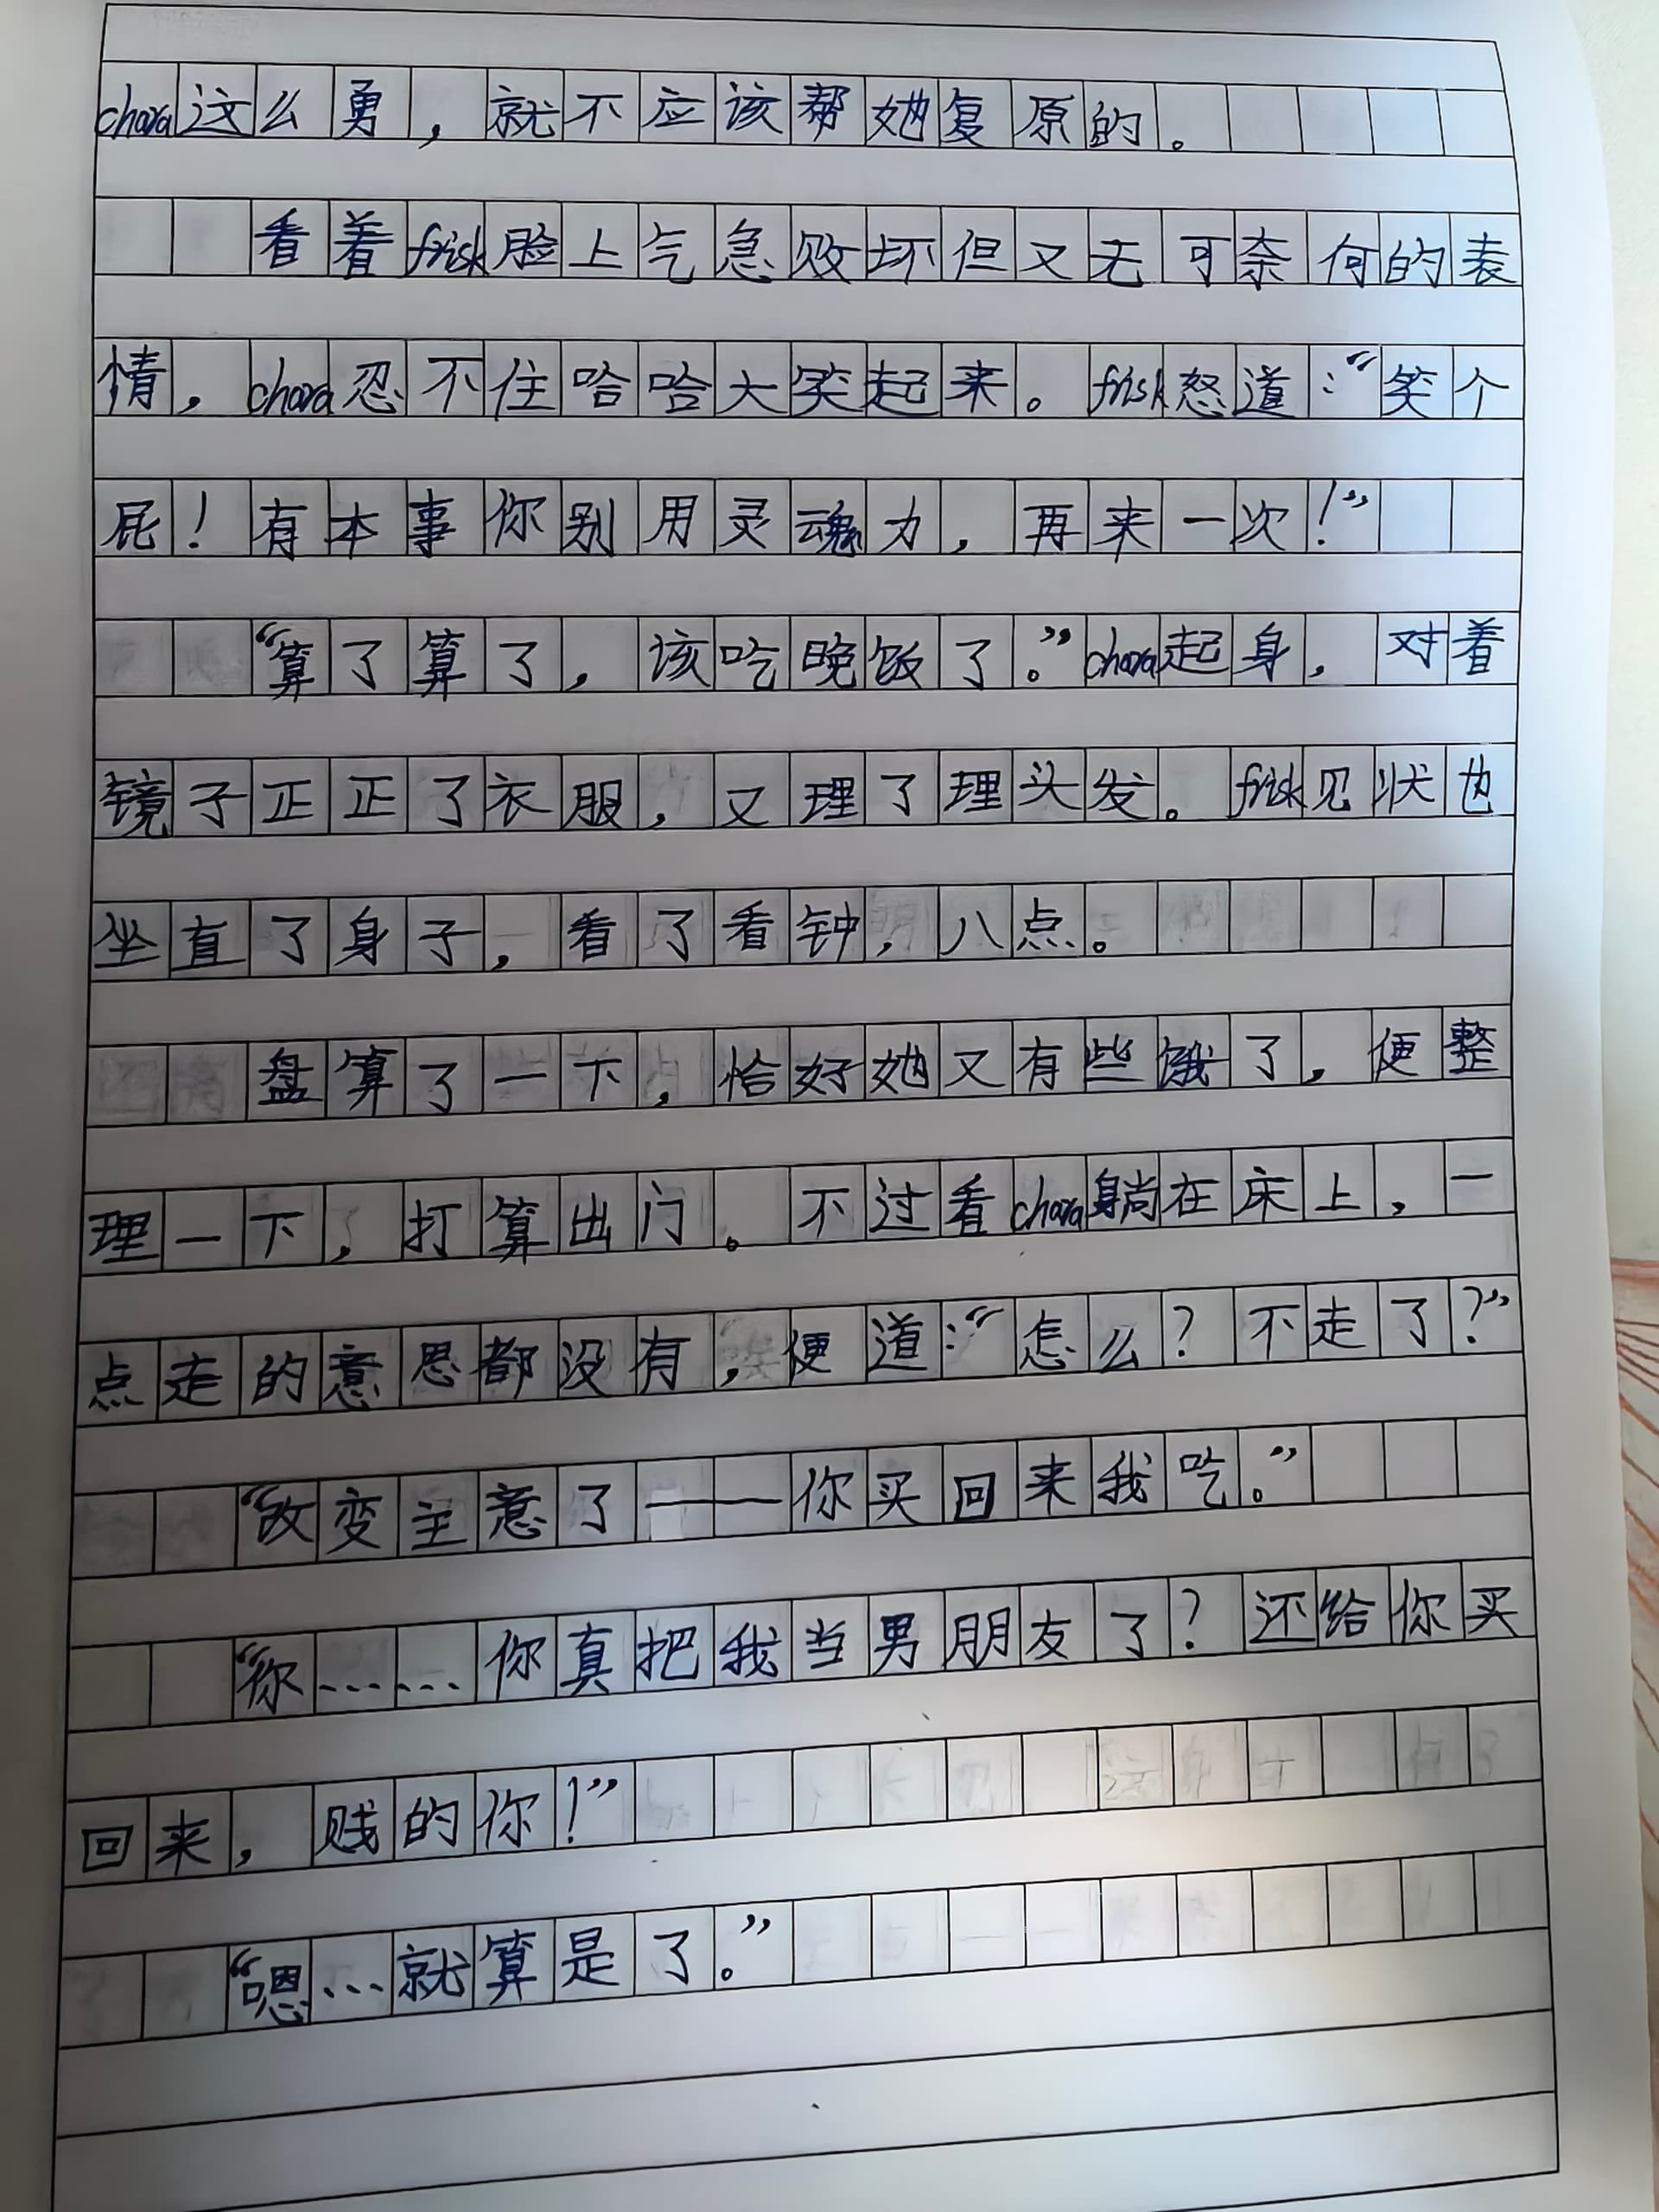 chara这么勇，就不应该帮她复原的。
看着frisk脸上气急败坏但又无可奈何的表
情，chara忍不住哈哈大笑起来。frisk怒道：“笑个
屁！有本事你别用灵魂力，再来一次！”
“算了算了，该吃晚饭了。”chara起身，对着
镜子正正了衣服，又理了理头发。frisk见状也
坐直了身子，看了看钟，八点。
盘算了一下，恰好她又有些饿了，便整
理一下，打算出门。不过看chara躺在床上，一
点走的意思都没有，便道：“怎么？不走了？”
“改变主意了——你买回来我吃。”
“你……你真把我当男朋友了？还给你买
回来，贱的你！”
“嗯…就算是了。”